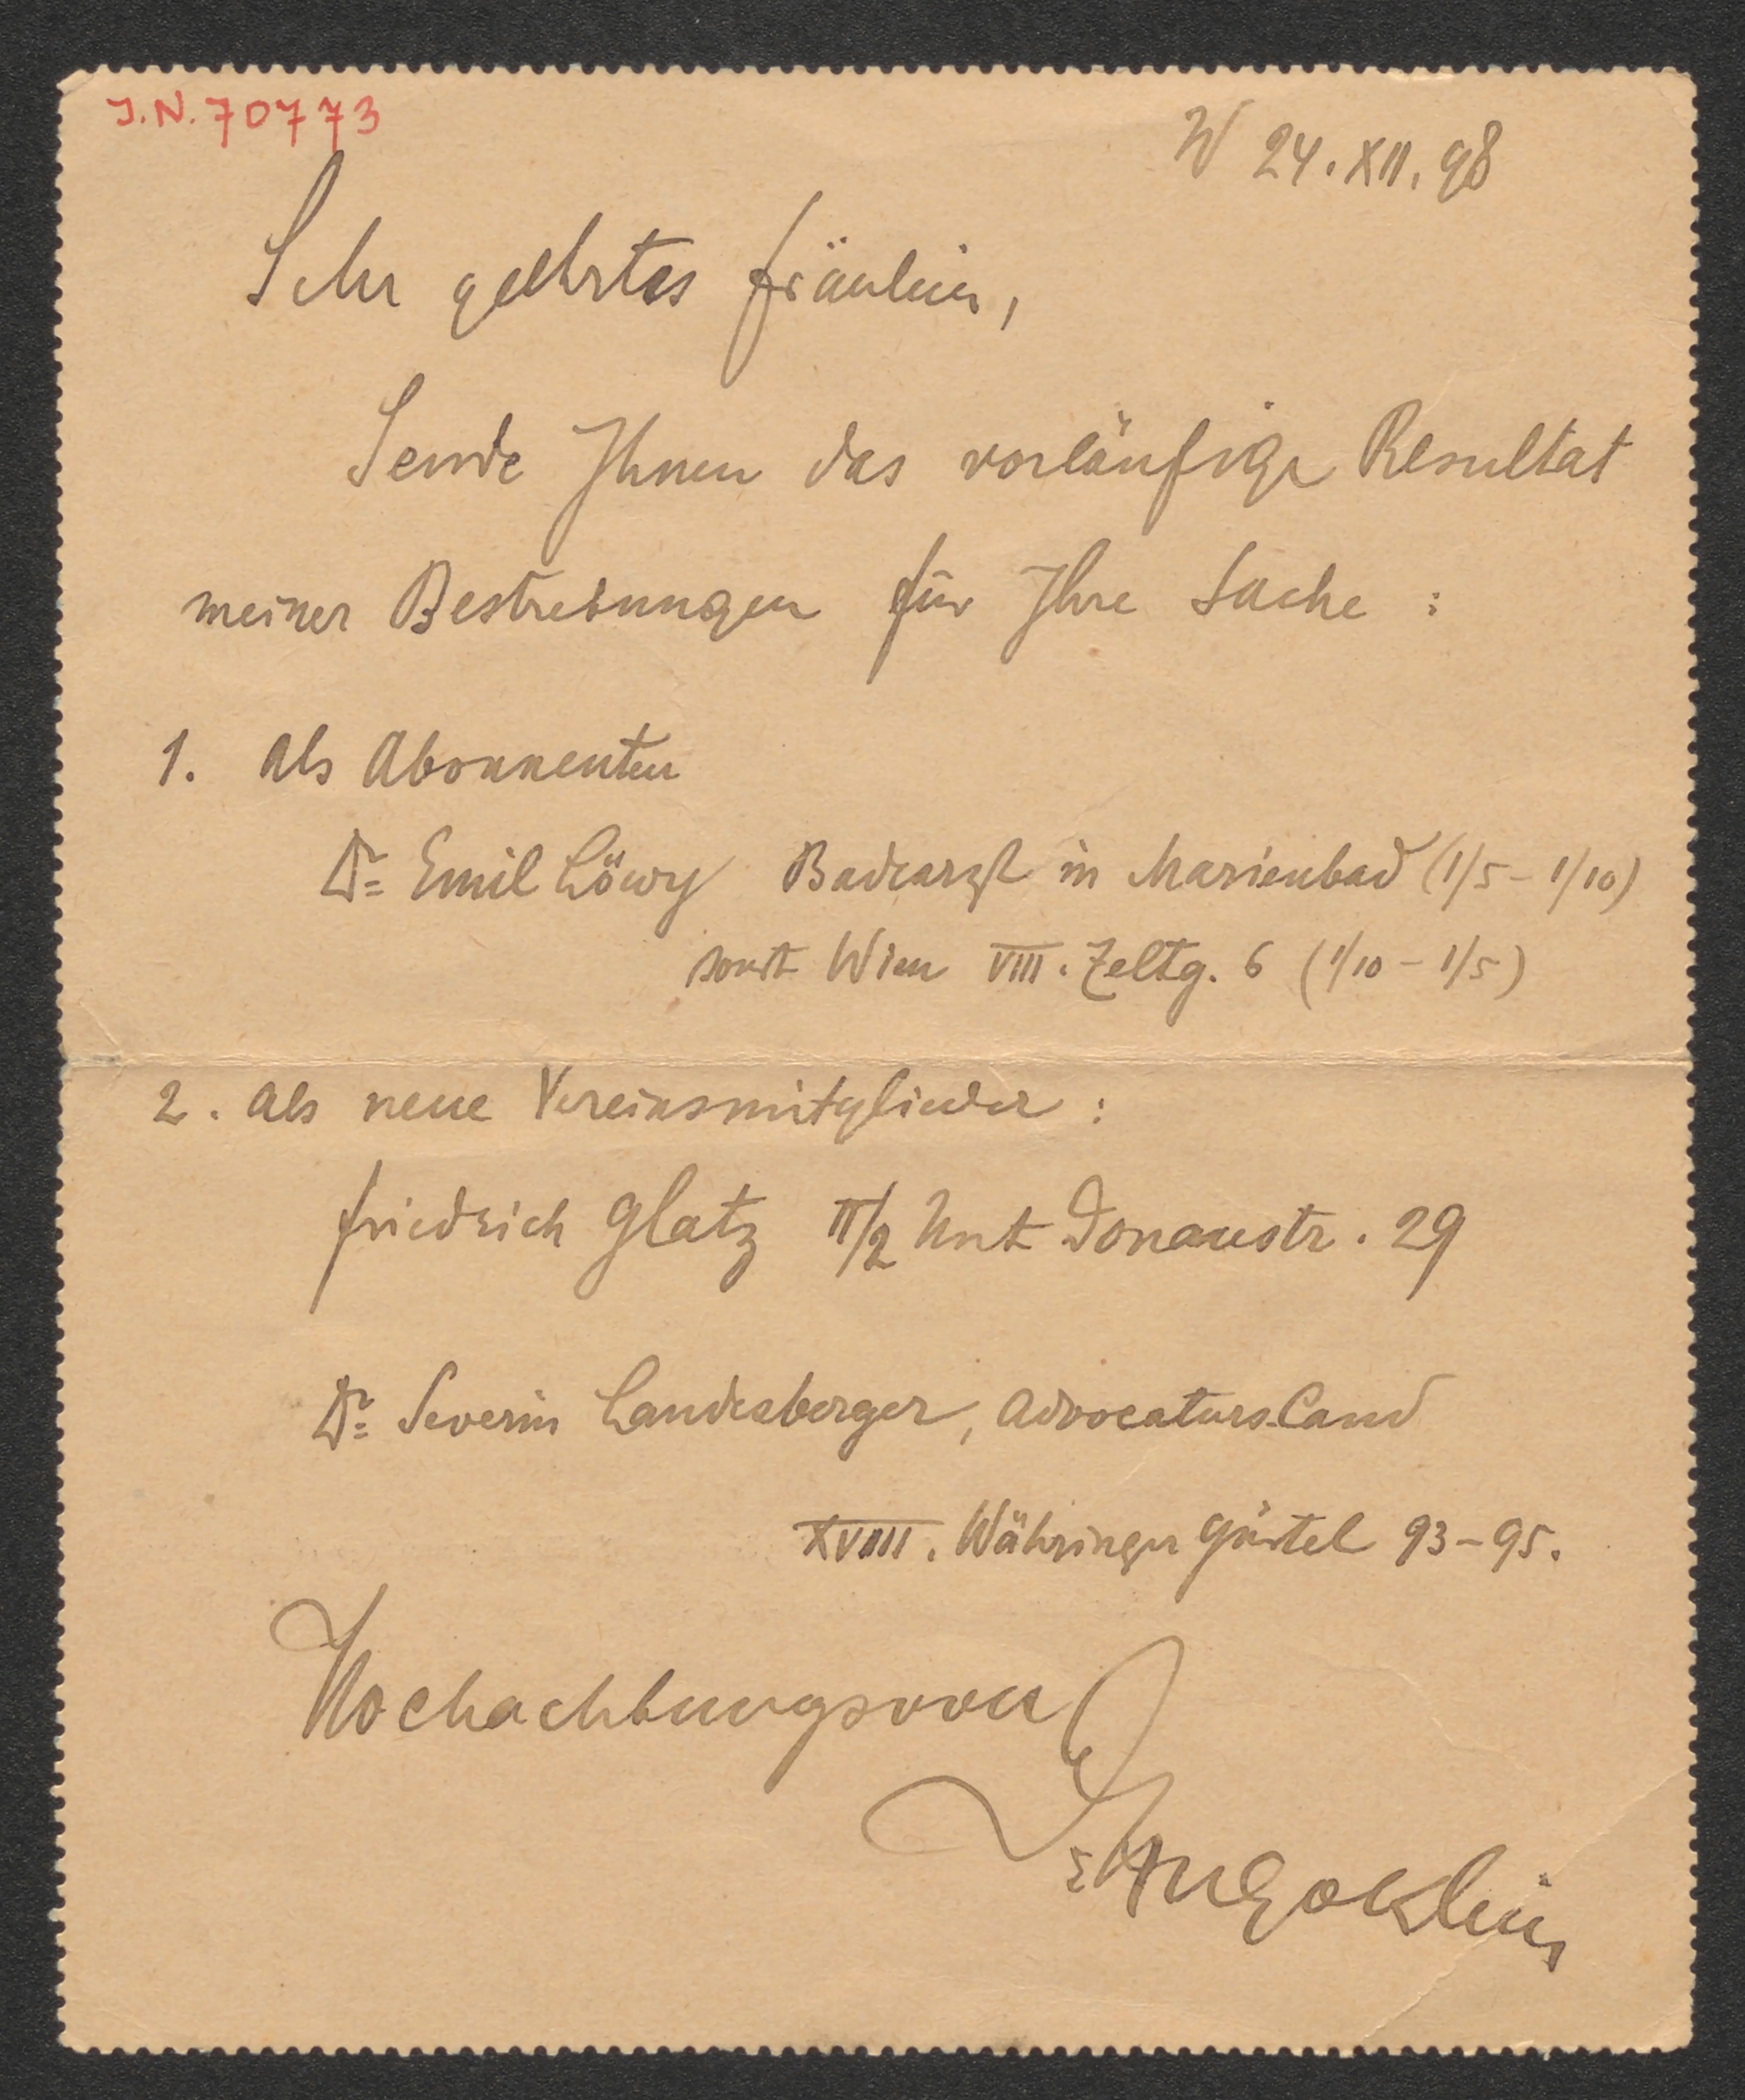 J.N. 70773
W 24. XII. 98
Sehr geehrtes Fräulein,
Sende Ihnen das vorläufige Resultat
meiner Bestrebungen für Ihre Sache :
1. Als Abonnenten
Dr. Emil Löwy Badearzt in Marienbad (1/5 - 1/10)
sonst Wien VIII. Zeltg. 6 (1/10 - 1/5)
2. Als neue Vereinsmitglieder :
Friedrich Glatz II/2 Unt Donaustr. 29
Dr. Severin Landesberger, Advocaturs-Cand
XVIII. Währinger Gürtel 93-95.
Hochachtungsvoll